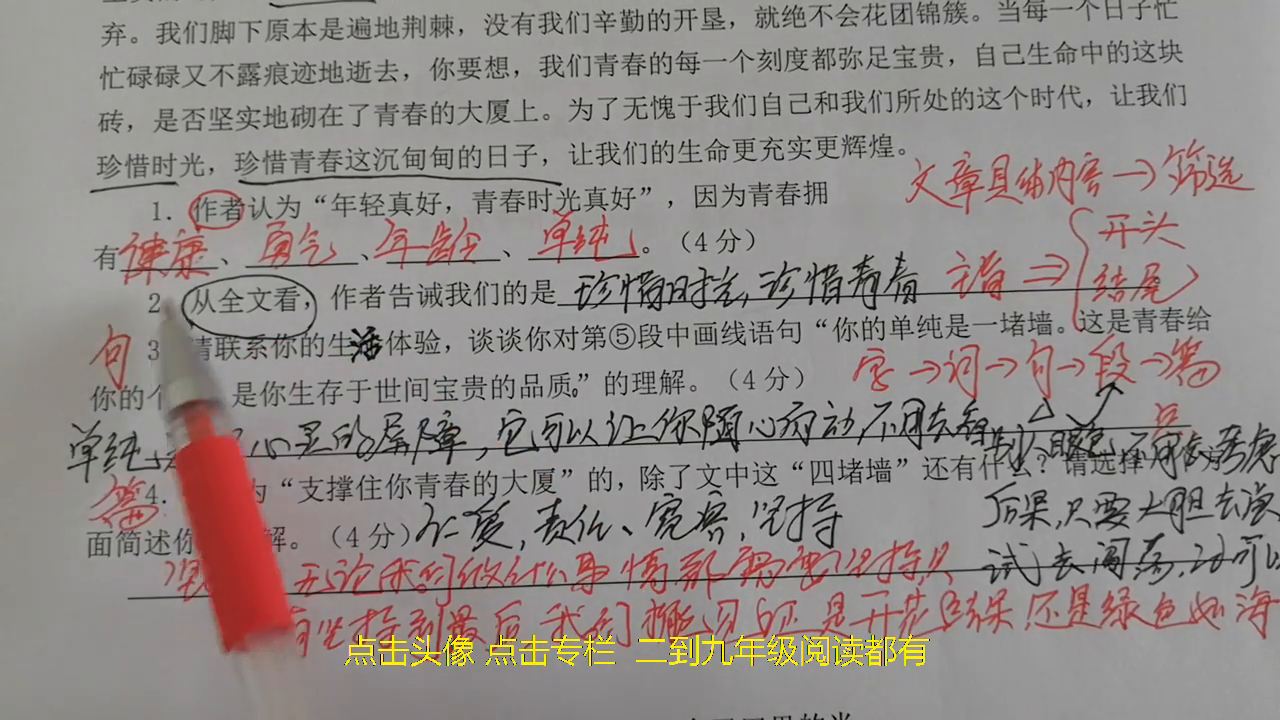 弃。我们脚下原本是遍地荆棘，没有我们辛勤的开垦，就绝不会花团锦簇。当每一个日子忙
忙碌碌又不露痕迹地逝去，你要想，我们青春的每一个刻度都弥足宝贵，自己生命中的这块
砖，是否坚实地砌在了青春的大厦上。为了无愧于我们自己和我们所处的这个时代，让我们
珍惜时光，珍惜青春这沉甸甸的日子，让我们的生命更充实更辉煌。
文章具体内容→筛选
1. 作者认为“年轻真好，青春时光真好”，因为青春拥
有健康、勇气、年龄、单纯。（4分）
主旨⇒{开头
结尾
2. 从全文看，作者告诫我们的是 珍惜时光，珍惜青春
句 3 请联系你的生活体验，谈谈你对第⑤段中画线语句“你的单纯是一堵墙。这是青春给
字→词→句→段→篇
你的个 是你生存于世间宝贵的品质。”的理解。（4分）
单纯, 心灵的屏障，它可以让你随心而动，不用去
不用去考虑
篇 4. 为“支撑住你青春的大厦”的，除了文中这“四堵墙”还有什么？请选择
后果，只要大胆去尝
面简述你 解。（4分）仁爱，责任、宽容，坚持
试去闯荡，
无论我们做什么事情都需要坚持，只
有坚持到最后，我们 还是开花结果，还是绿色如海
点击头像 点击专栏 二到九年级阅读都有